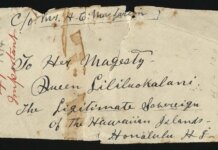 C/o Mrs. H. C.
Important.
To Her Magesty
Queen Liliuokalani.
The Ligitimate Sovereign
of the Hawaiian Islands-
Honolulu H I-